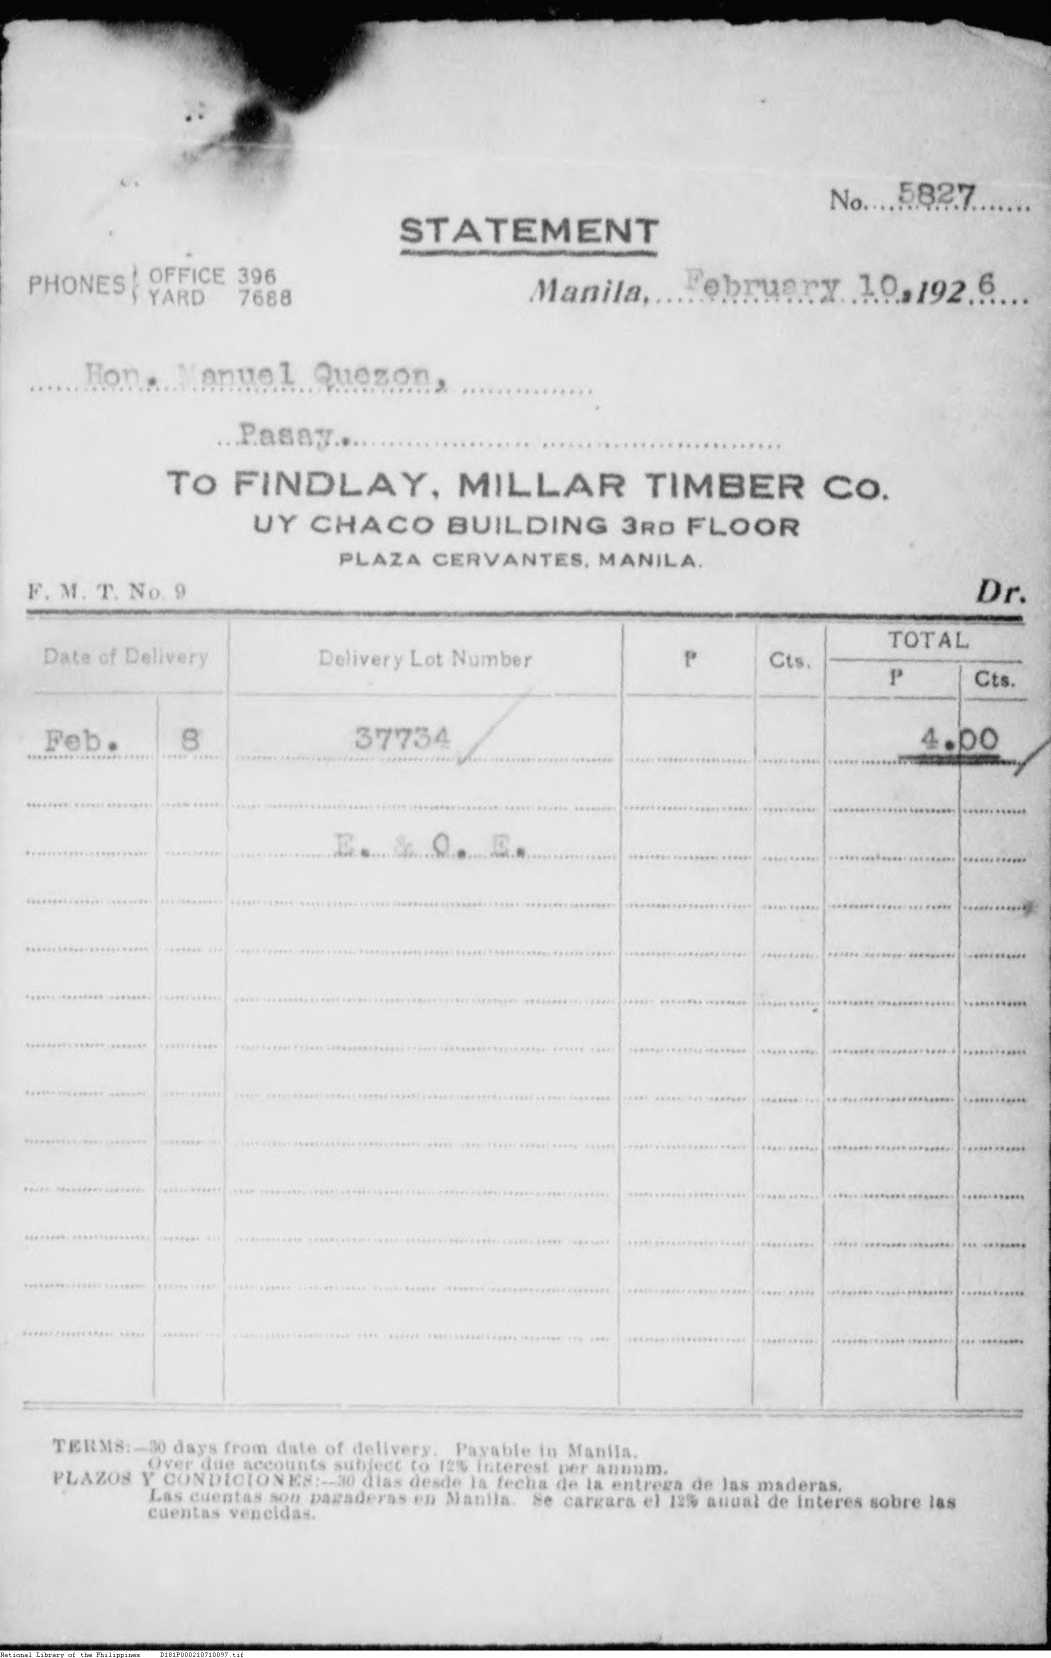 No. 5827
STATEMENT
PHONES OFFICE 396
YARD 7688
Manila, February 10, 1926
Hon. Manuel Quezon,
Pasay.
To FINDLAY, MILLAR TIMBER Co.
UY CHACO BUILDING 3RD FLOOR
PLAZA CERVANTES, MANILA.
F. M. T. No. 9 Dr.
Date of Delivery Delivery Lot Number P Cts. TOTAL
P Cts.
Feb. 8 37734 4.00
E. & O. E.
TERMS:—30 days from date of delivery. Payable in Manila.
Over due accounts subject to 12% interest per annum.
PLAZOS Y CONDICIONES:—30 dias desde la fecha de la entrega de las maderas.
Las cuentas son pagaderas en Manila. Se cargara el 12% anual de interes sobre las
cuentas vencidas.
National Library of the Philippines D181P000210710097.tif